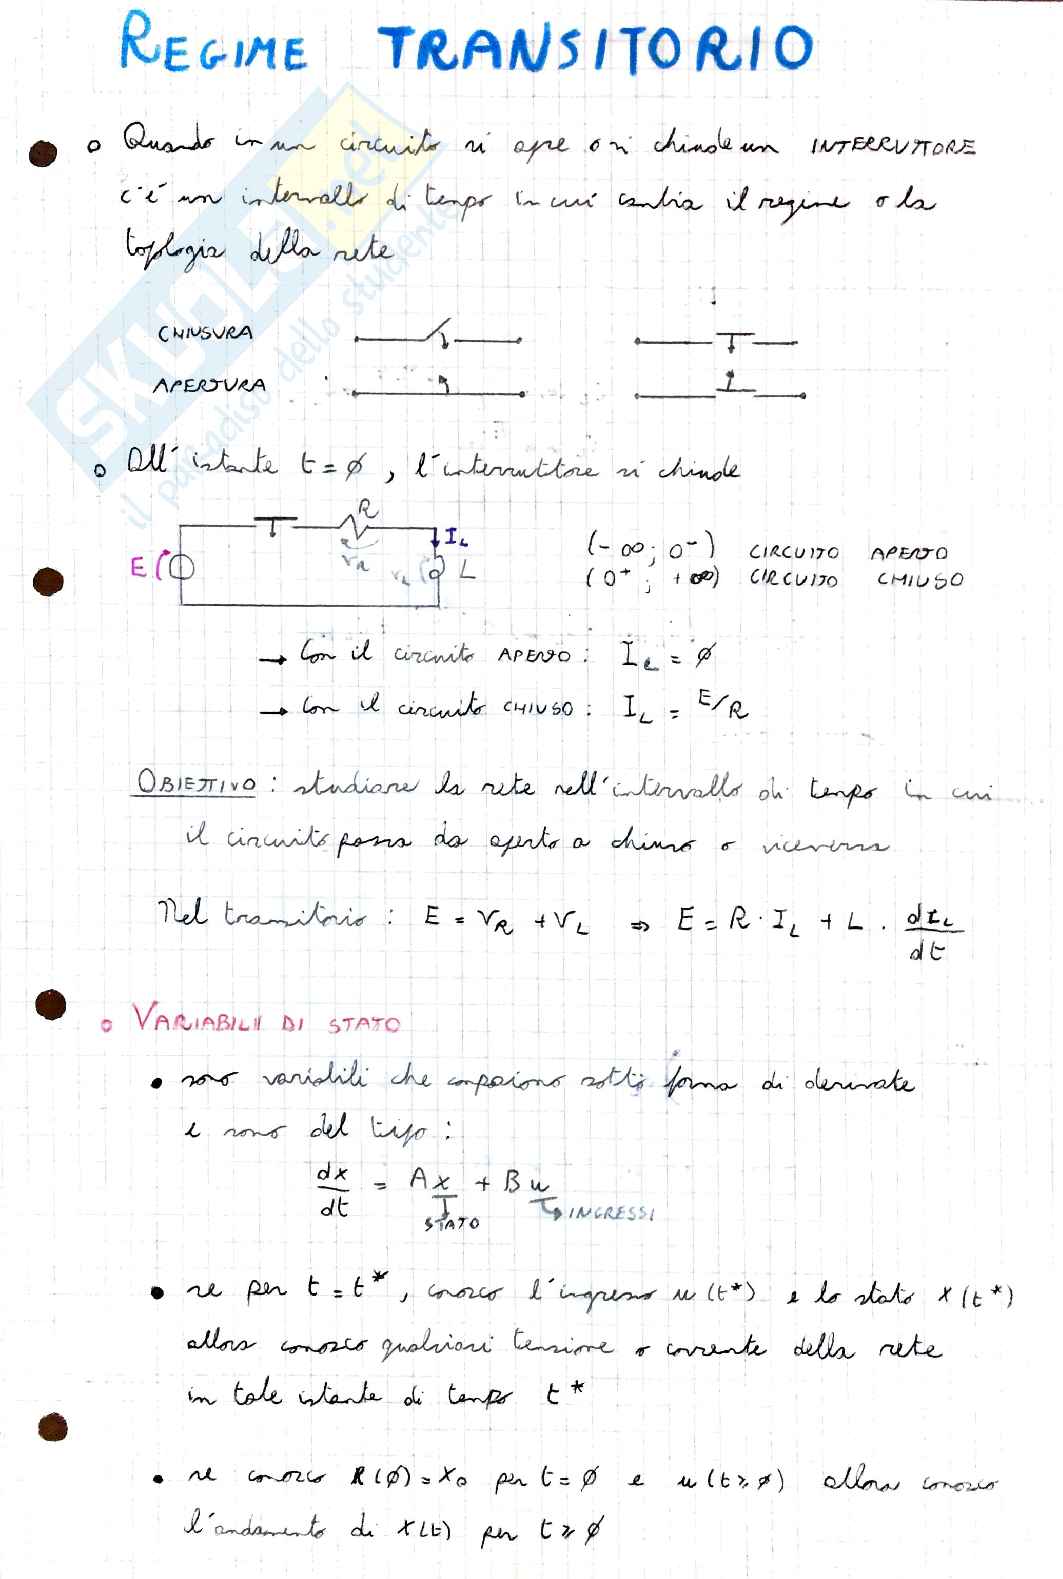 REGIME TRANSITORIO
Quando in un circuito si apre o si chiude un INTERRUTTORE
c'é un intervallo di tempo in cui cambia il regime o la
toplogia della rete
CHIUSURA
APERTURA
All'istante t=ϕ, l'interruttore si chiude
R
I_L
E
V_R
V_L
L
(-∞; 0⁻) CIRCUITO APERTO
(0⁺; +∞) CIRCUITO CHIUSO
→ Con il circuito APERTO: I_L = ϕ
→ Con il circuito CHIUSO: I_L = E/R
OBIETTIVO: studiare la rete nell'intervallo di tempo in cui
il circuito passa da aperto a chiuso o viceversa
Nel transitorio: E = V_R + V_L ⇒ E = R · I_L + L · dI_L/dt
VARIABILI DI STATO
sono variabili che compaiono sotto forma di derivate
e sono del tipo:
dx/dt = Ax + Bu
STATO
INGRESSI
se per t = t*, conosco l'ingresso u(t*) e lo stato x(t*)
allora conosco qualsiasi tensione o corrente della rete
in tale istante di tempo t*
se conosco x(ϕ) = x₀ per t = ϕ e u(t≥ϕ) allora conosco
l'andamento di x(t) per t ≥ ϕ
SKUOLA.net
il paradiso dello studente